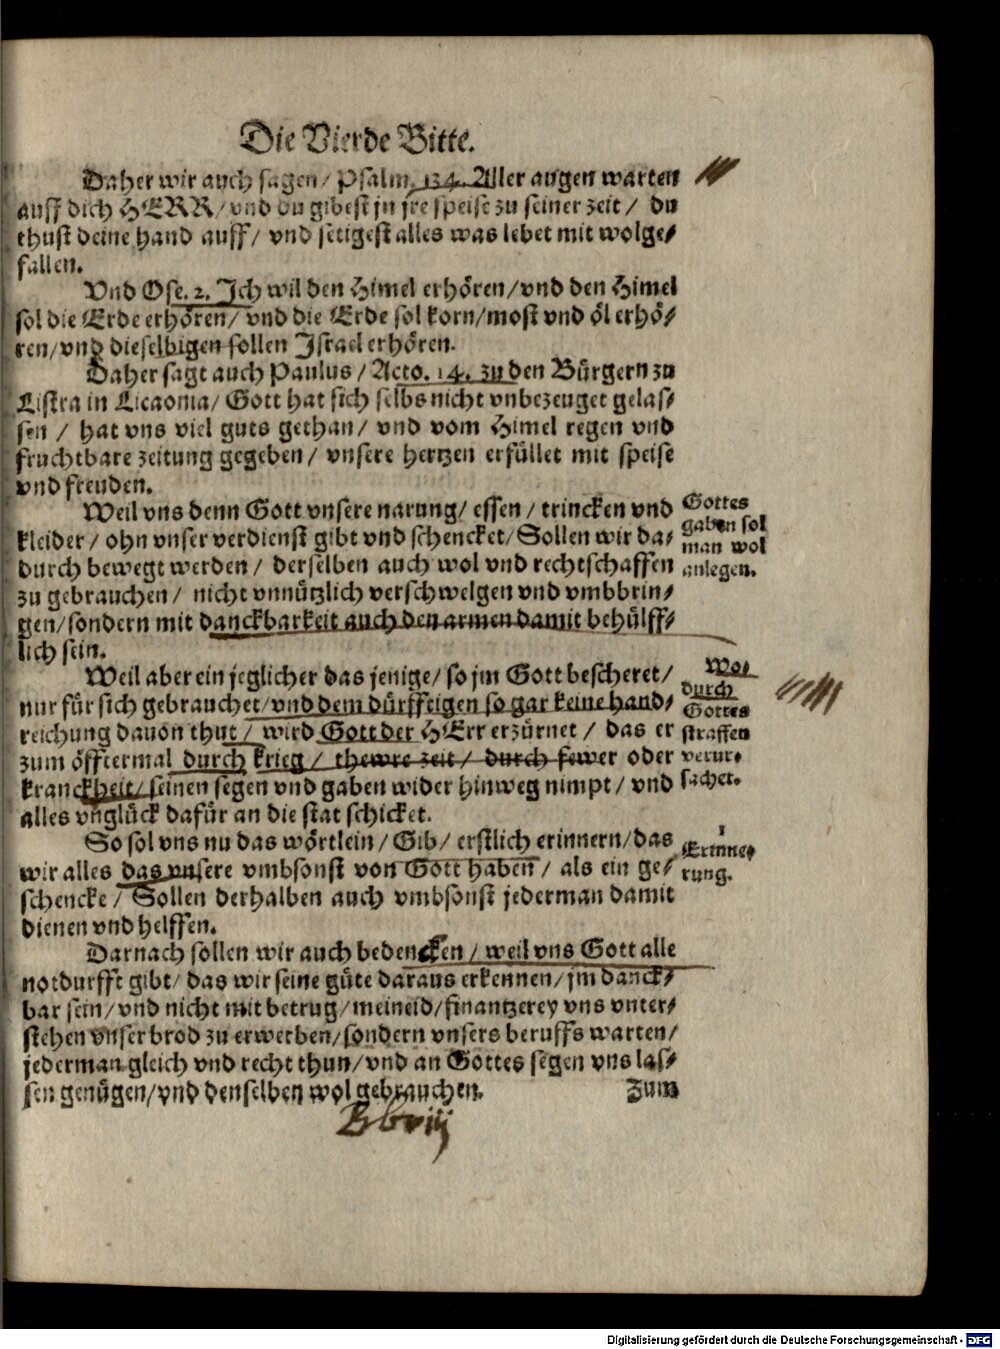 Die Vierde Bitte.
Daher wir auch sagen / Psalm. 134. Aller augen warten
auff dich HERR / vnd du gibest jn jre speise zu seiner zeit / du
thust deine hand auff / vnd setigest alles was lebet mit wolge⸗
fallen.
Vnd Ose. 2. Ich wil den Himel erhören / vnd den Himel
sol die Erde erhören / vnd die Erde sol korn / most vnd öl erhö⸗
ren / vnd dieselbigen sollen Israel erhören.
Daher sagt auch Paulus / Acto. 14. zu den Bürgern zu
Listra in Licaonia / Gott hat sich selbs nicht vnbezeuget gelas⸗
sen / hat vns viel guts gethan / vnd vom Himel regen vnd
fruchtbare zeitung gegeben / vnsere hertzen erfüllet mit speise
vnd freuden.
Weil vns denn Gott vnsere narung / essen / trincken vnd
kleider / ohn vnser verdienst gibt vnd schencket / Sollen wir da⸗
durch bewegt werden / derselben auch wol vnd rechtschaffen
zu gebrauchen / nicht vnnützlich verschwelgen vnd vmbbrin⸗
gen / sondern mit danckbarkeit auch den armen damit behülff⸗
lich sein.
Gottes
gaben sol
man wol
anlegen.
Weil aber ein jeglicher das jenige / so jm Gott bescheret /
nur für sich gebrauchet / vnd dem dürfftigen so gar keine hand⸗
reichung dauon thut / wird Gott der HErr erzürnet / das er
zum öfftermal durch krieg / thewre zeit / durch fewer oder
kranckheit / seinen segen vnd gaben wider hinweg nimpt / vnd
alles vnglück dafür an die stat schicket.
Wo⸗
durch
Gottes
straffen
verur⸗
sachet.
So sol vns nu das wörtlein / Gib / erstlich erinnern / das
wir alles das vnsere vmbsonst von Gott haben / als ein ge⸗
schencke / Sollen derhalben auch vmbsonst jederman damit
dienen vnd helffen.
1
Erinne⸗
rung.
Darnach sollen wir auch bedencken / weil vns Gott alle
notdurfft gibt / das wir seine güte daraus erkennen / jm danck⸗
bar sein / vnd nicht mit betrug / meineid / finantzerey vns vnter⸗
stehen vnser brod zu erwerben / sondern vnsers beruffs warten /
jederman gleich vnd recht thun / vnd an Gottes segen vns las⸗
sen genügen / vnd denselben wol gebrauchen.
Zum
Bb viij
Digitalisierung gefördert durch die Deutsche Forschungsgemeinschaft - DFG